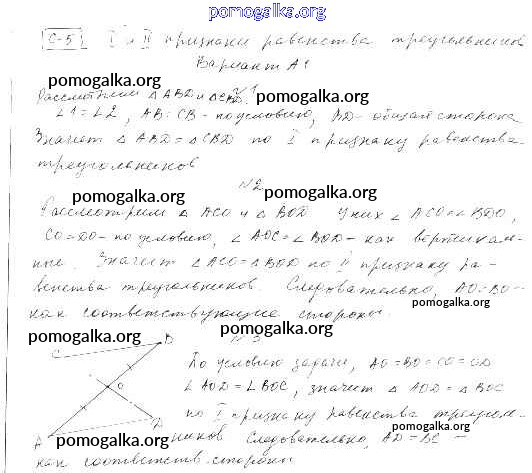 pomogalka.org
С-5 I и II признаки равенства треугольников
Вариант А1
pomogalka.org pomogalka.org
Рассмотрим △ ABD и △CBD. №1
∠1=∠2, AB=CB - по условию, BD - общая сторона
pomogalka.org pomogalka.org
Значит △ ABD = △CBD по I признаку равенства
треугольников
№2
pomogalka.org pomogalka.org
Рассмотрим △ ACO и △ BOD У них ∠ ACO=∠BDO,
CO=DO - по условию, ∠ AOC=∠ BOD - как вертикаль-
ные. Значит △ ACO=△ BOD по II признаку ра-
венства треугольников. Следовательно, AO=BO -
pomogalka.org
как соответствующие стороны.
pomogalka.org pomogalka.org
№3
C B
По условию задачи, AO=BO=CO=OD
O
∠ AOD=∠ BOC, значит △ AOD = △ BOC
по I признаку равенства треуголь-
A D
pomogalka.org pomogalka.org
ников Следовательно, AD=BC -
как соответств. стороны
pomogalka.org